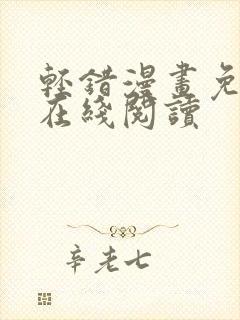 輕錯漫畫免
在綫閱讀
辛老七